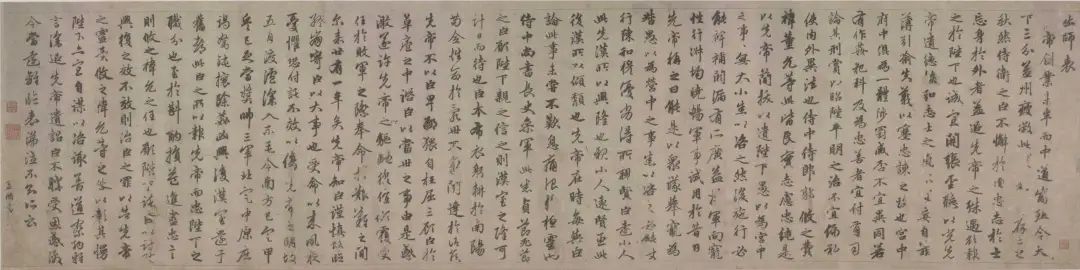 出師表
帝創業未半而中道崩殂今天
下三分益州疲敝此存亡之
秋然侍衛之臣不懈於內忠志之士
忘身於外者蓋追先帝之殊遇欲報
之於陛下也誠宜開張聖聽以光先
帝遺德恢和志士之氣不宜妄自菲
薄引喻失義以塞忠諫之路也宮中
府中俱為一體陟罰臧否不宜異同若
有作姦犯科及為忠善者宜付有司
論其刑賞以昭陛下平明之治不宜偏私
使內外異法也侍中侍郎郭攸之費
禕董允等此皆良實志慮忠純是
以先帝簡拔以遺陛下愚以為宮中
之事事無大小悉以咨之然後施行必
能裨補闕漏有所廣益將軍向寵
性行淑均曉暢軍事試用於昔日
先帝稱之曰能是以眾議舉寵為
督愚以為營中之事悉以咨之必能使
行陳和穆優劣得所親賢臣遠小人
此先漢所以興隆也親小人遠賢臣此
後漢所以傾頹也先帝在時每與臣
論此事未嘗不歎息痛恨於桓靈也
侍中尚書長史參軍此悉貞亮死節
之臣願陛下親之信之則漢室之隆可
計日而待也臣本布衣躬耕於南陽
苟全性命於亂世不求聞達於諸侯
先帝不以臣卑鄙猥自枉屈三顧臣於
草廬之中諮臣以當世之事由是感
激遂許先帝以驅馳後值傾覆受
任於敗軍之際奉命於危難之間
爾來廿有一年矣先帝知臣謹慎故臨
終寄臣以大事也受命以來夙夜
憂懼恐付託不效以傷先帝之明故
五月渡瀘深入不毛今南方已定甲
兵已足當獎帥三軍北定中原庶
竭駑鈍攘除姦凶興復漢室還于
舊都此臣之所以報先帝而忠陛下之
職分也至於斟酌損益進盡忠言
則攸之禕允之任也願陛下託臣以討賊
興復之效不效則治臣之罪以告先帝
之靈責攸之禕允等之咎以彰其慢
陛下亦宜自謀以諮諏善道察納雅
言深追先帝遺詔臣不勝受恩感激
今當遠離臨表涕泣不知所云